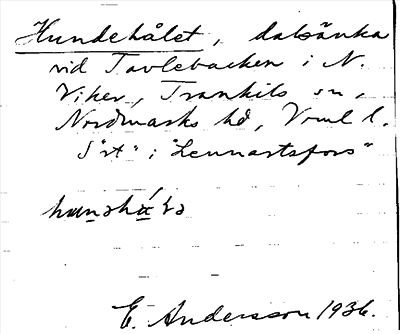 Hundehålet, dalsänka
vid Tavlebacken i N.
Viker, Trankils sn,
Nordmarks hd, Vrml l.
S"rt" i "Lennartsfors"
E. Andersson 1936.